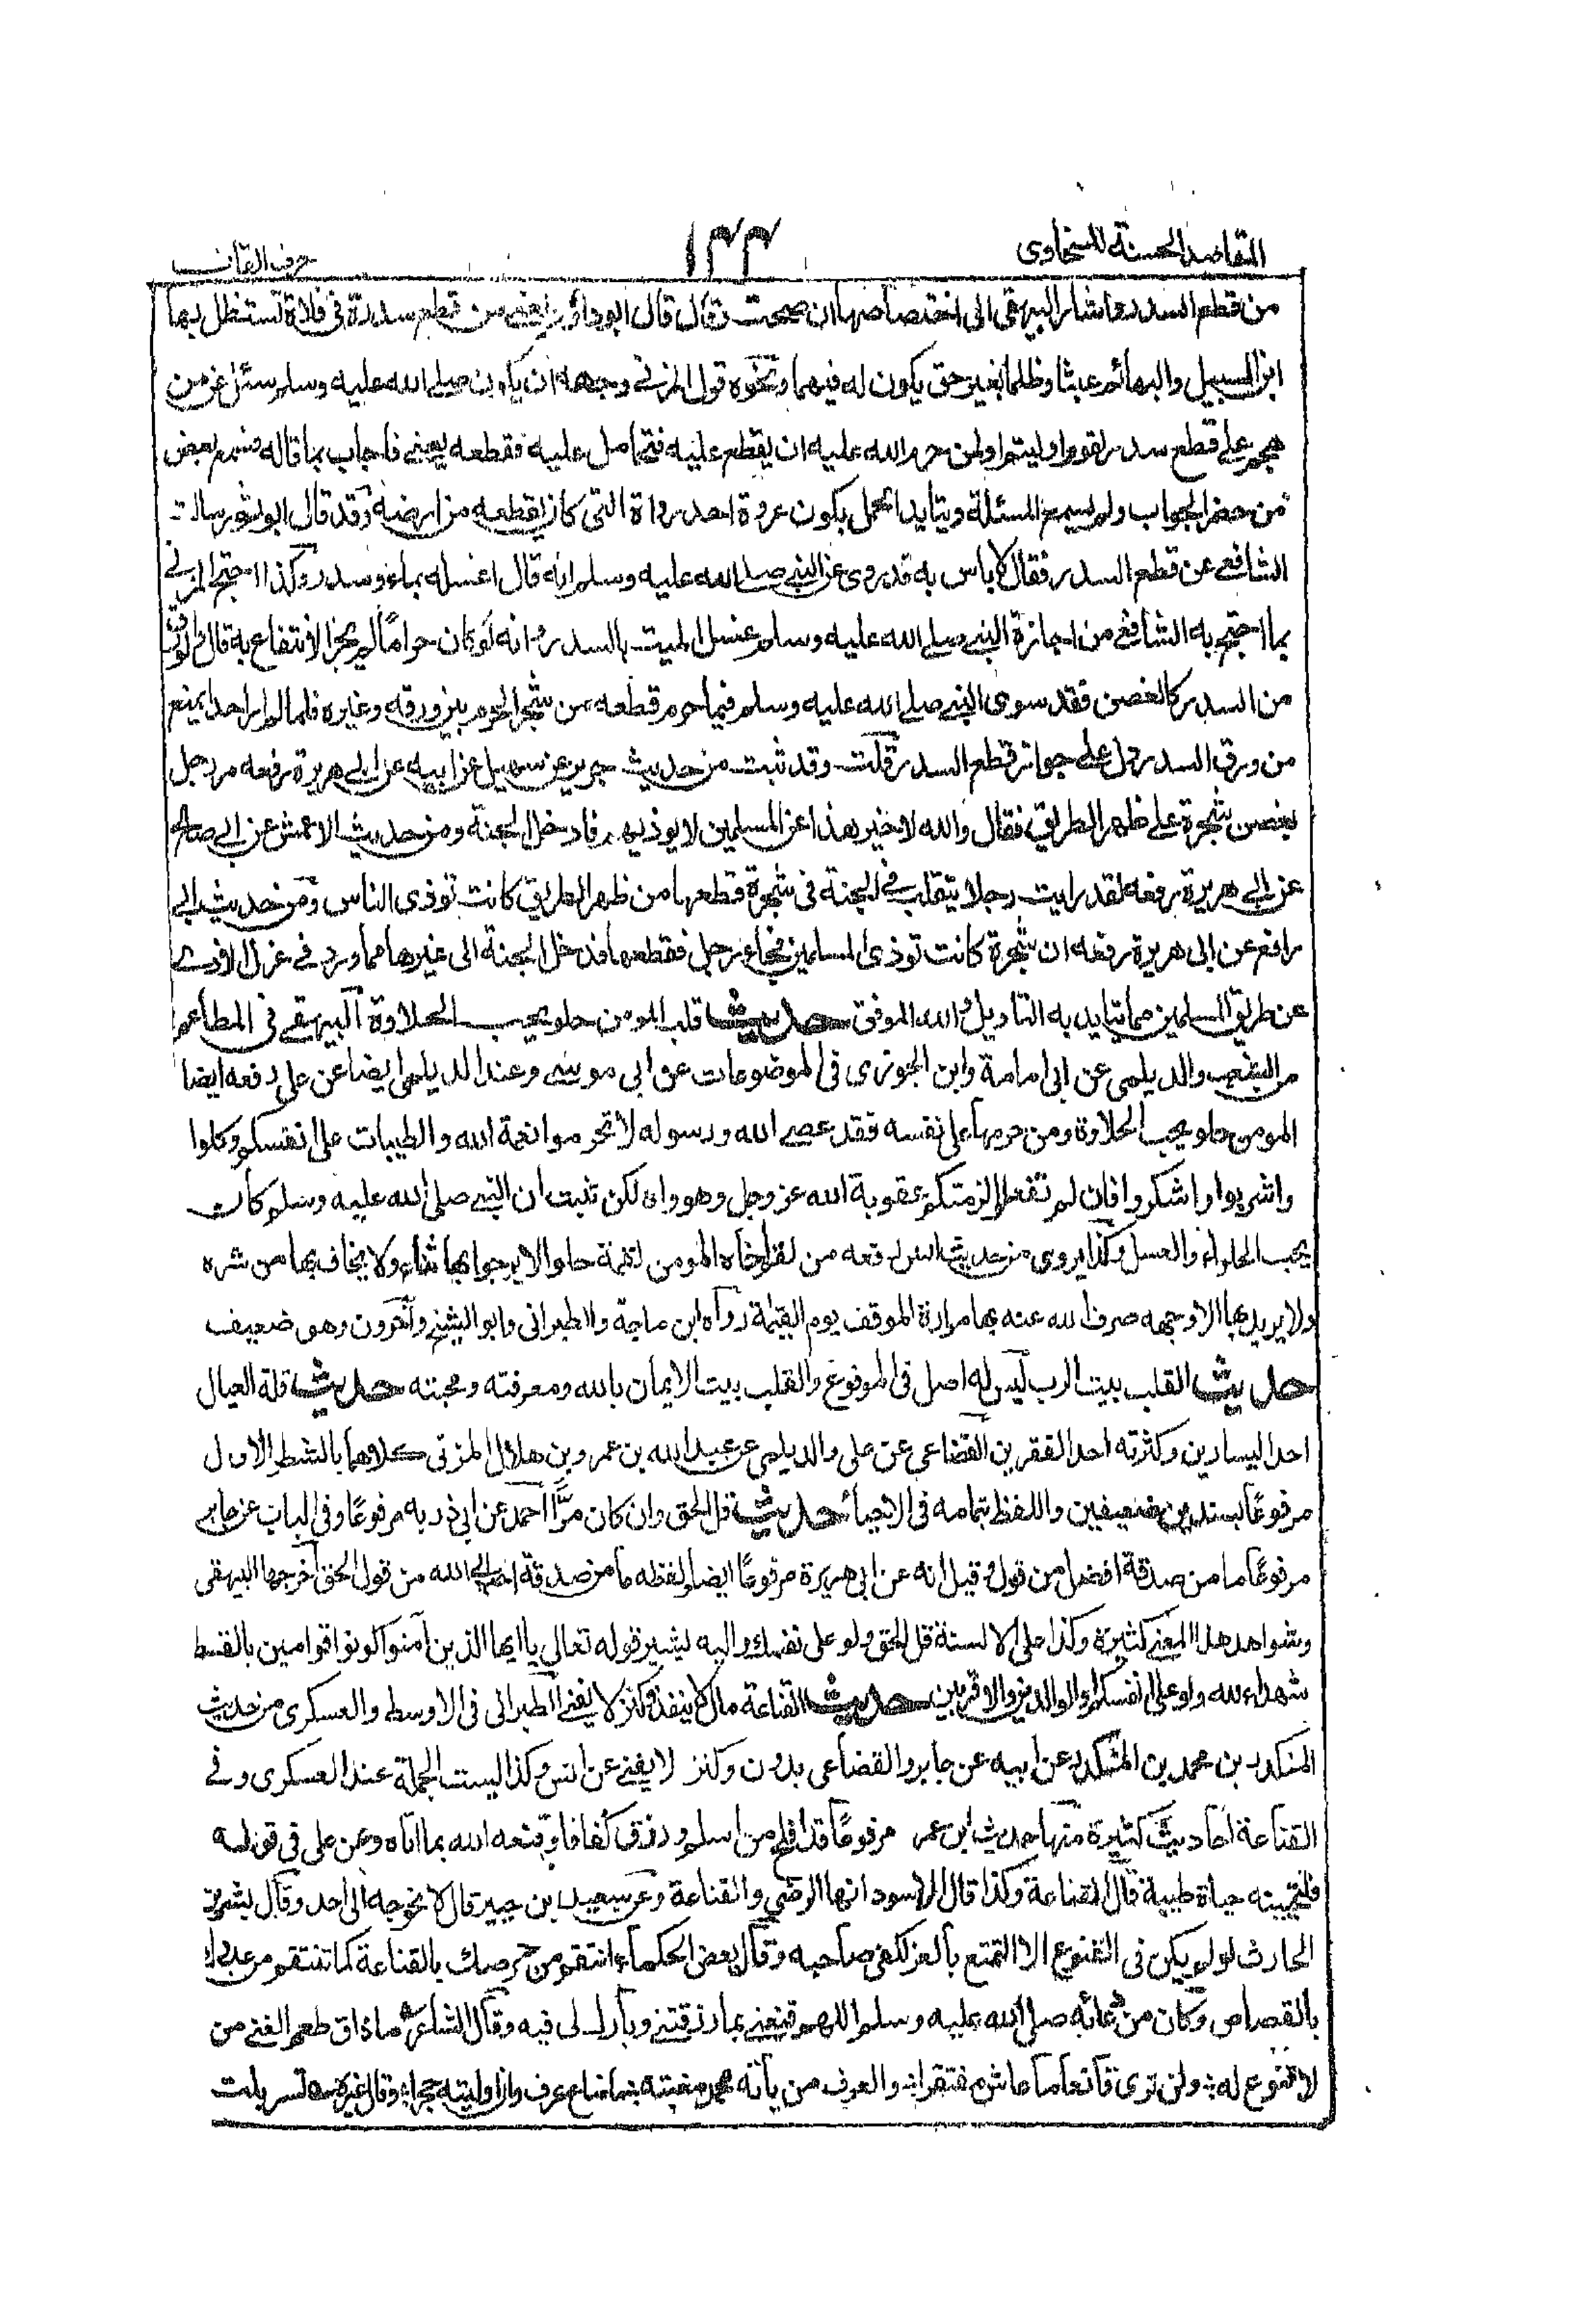 المقاصد الحسنة للسخاوی
١٣٣
حرف القاف
من قطع السدر واشار البيهقى الى اختصاصها ان صحت وقال قال ابو داؤد يعنى من قطع سدرة فى فلاة تستظل بها
ابن السبيل والبهائم عبثا وظلما بغير حق يكون له فيهما ونحوه قول المزنى وجهه ان يكون صلى الله عليه وسلم سئل عن من
هجم على قطع سدر لقوم او ليتيم او لمن حرم الله عليه ان يقطع عليه فتحامل عليه فقطعه يعنى فاجاب بما قاله فسمع بعض
من حضر الجواب ولم يسمع المسئلة ويتأيد الحمل بكون عروة احد رواة النهى كان يقطعه من ارضه وقد قال ابو ثور سالت
الشافعى عن قطع السدر فقال لا باس به قد روى عن النبى صلى الله عليه وسلم انه قال اغسله بماء وسدر وكذا احتج المزنى
بما احتج به الشافعى من اجازة النبى صلى الله عليه وسلم غسل الميت بالسدر وانه لو كان حراما لم يجز الانتفاع به قال والورق
من السدر كالغصن فقد سوى النبى صلى الله عليه وسلم فيما حرم قطعه من شجر الحرم بين ورقه وغيره فلما لم ار احدا يمنع
من ورق السدر دل على جواز قطع السدر قلت وقد ثبت من حديث جرير عن سهيل عن ابيه عن ابى هريرة رفعه مر رجل
بغصن شجرة على ظهر الطريق فقال والله لاخير هذا عن المسلمين لا يوذيهم فادخل الجنة ومن حديث الاعمش عن ابى صالح
عن ابى هريرة رفعه لقد رايت رجلا يتقلب فى الجنة فى شجرة قطعها من ظهر الطريق كانت توذى الناس ومن حديث ابى
رافع عن ابى هريرة رفعه ان شجرة كانت توذى المسلمين فجاء رجل فقطعها فدخل الجنة الى غيرها مما ورد فى عزل الاذى
عن طريق المسلمين مما يتايد به التاويل والله الموفق حديث قلب المومن حلو يحب الحلاوة البيهقى فى المطاعم
من الشعب والديلمى عن ابى امامة وابن الجوزى فى الموضوعات عن ابى موسى وعند الديلمى ايضا عن على رفعه ايضا
المومن حلو يحب الحلاوة ومن حرمها على نفسه فقد عصى الله ورسوله لا تحرموا نعمة الله والطيبات على انفسكم وكلوا
واشربوا واشكروا فان لم تفعلوا لزمتكم عقوبة الله عز وجل وهو واه لكن ثبت ان النبى صلى الله عليه وسلم كان
يحب الحلواء والعسل وكذا يروى من حديث انس رفعه من لقم اخاه المومن لقمة حلوا لا يرجوا بها ثناء ولا يخاف بها من شره
ولا يريد بها الا وجهه صرف الله عنه بها مرارة الموقف يوم القيمة رواه ابن ماجة والطبرانى وابو الشيخ وآخرون وهو ضعيف
حديث القلب بيت الرب ليس له اصل فى المرفوع والقلب بيت الايمان بالله ومعرفته ومحبته حديث قلة العيال
احد اليسارين وكثرته احد الفقرين القضاعى عن على والديلمى عن عبد الله بن عمرو بن هلال المزنى كلاهما بالشطر الاول
مرفوعًا بسندين ضعيفين واللفظ بتمامه فى الاحياء حديث قل الحق وان كان مرًّا احمد عن ابى ذر به مرفوعًا وفى الباب عن جابر
مرفوعًا ما من صدقة افضل من قول وقيل انه عن ابى هريرة مرفوعًا ايضا ولفظه ما من صدقة احب الى الله من قول الحق اخرجها البيهقى
وشواهد هذا المعنى كثيرة وكذا على الالسنة قل الحق ولو على نفسك واليه يشير قوله تعالى ياايها الذين آمنوا كونوا قوامين بالقسط
شهداء لله ولو على انفسكم او الوالدين والاقربين حديث القناعة مال لا ينفد وكنز لا يفنى الطبرانى فى الاوسط والعسكرى من حديث
المنكدر بن محمد بن المنكدر عن ابيه عن جابر والقضاعى بدون وكنز لا يفنى عن انس وكذا ليست الجملة عند العسكرى وفى
القناعة احاديث كثيرة منها حديث ابن عمر مرفوعًا قد افلح من اسلم ورزق كفافا وقنعه الله بما اتاه وعن على فى قوله
فلنحيينه حياة طيبة قال القناعة وكذا قال الاسود انها الرضى والقناعة وعن سعيد بن جبير قال لا نحوجه الى احد وقال بشر بن
الحارث لو لم يكن فى القنوع الا التمتع بالعز لكفى صاحبه وقال بعض الحكماء انتقم من حرصك بالقناعة كما تنتقم من عدوك
بالقصاص وكان من دعائه صلى الله عليه وسلم اللهم قنعنى بما رزقتنى وبارك لى فيه وقال الشاعر ما ذاق طعم الغنى من
لا قنوع له ولن ترى قانعا ما عاش مفتقرا والعرف من يأته يحمد مغبته ما ضاع عرف وان اوليته حجرا وقال غيره تسربلت